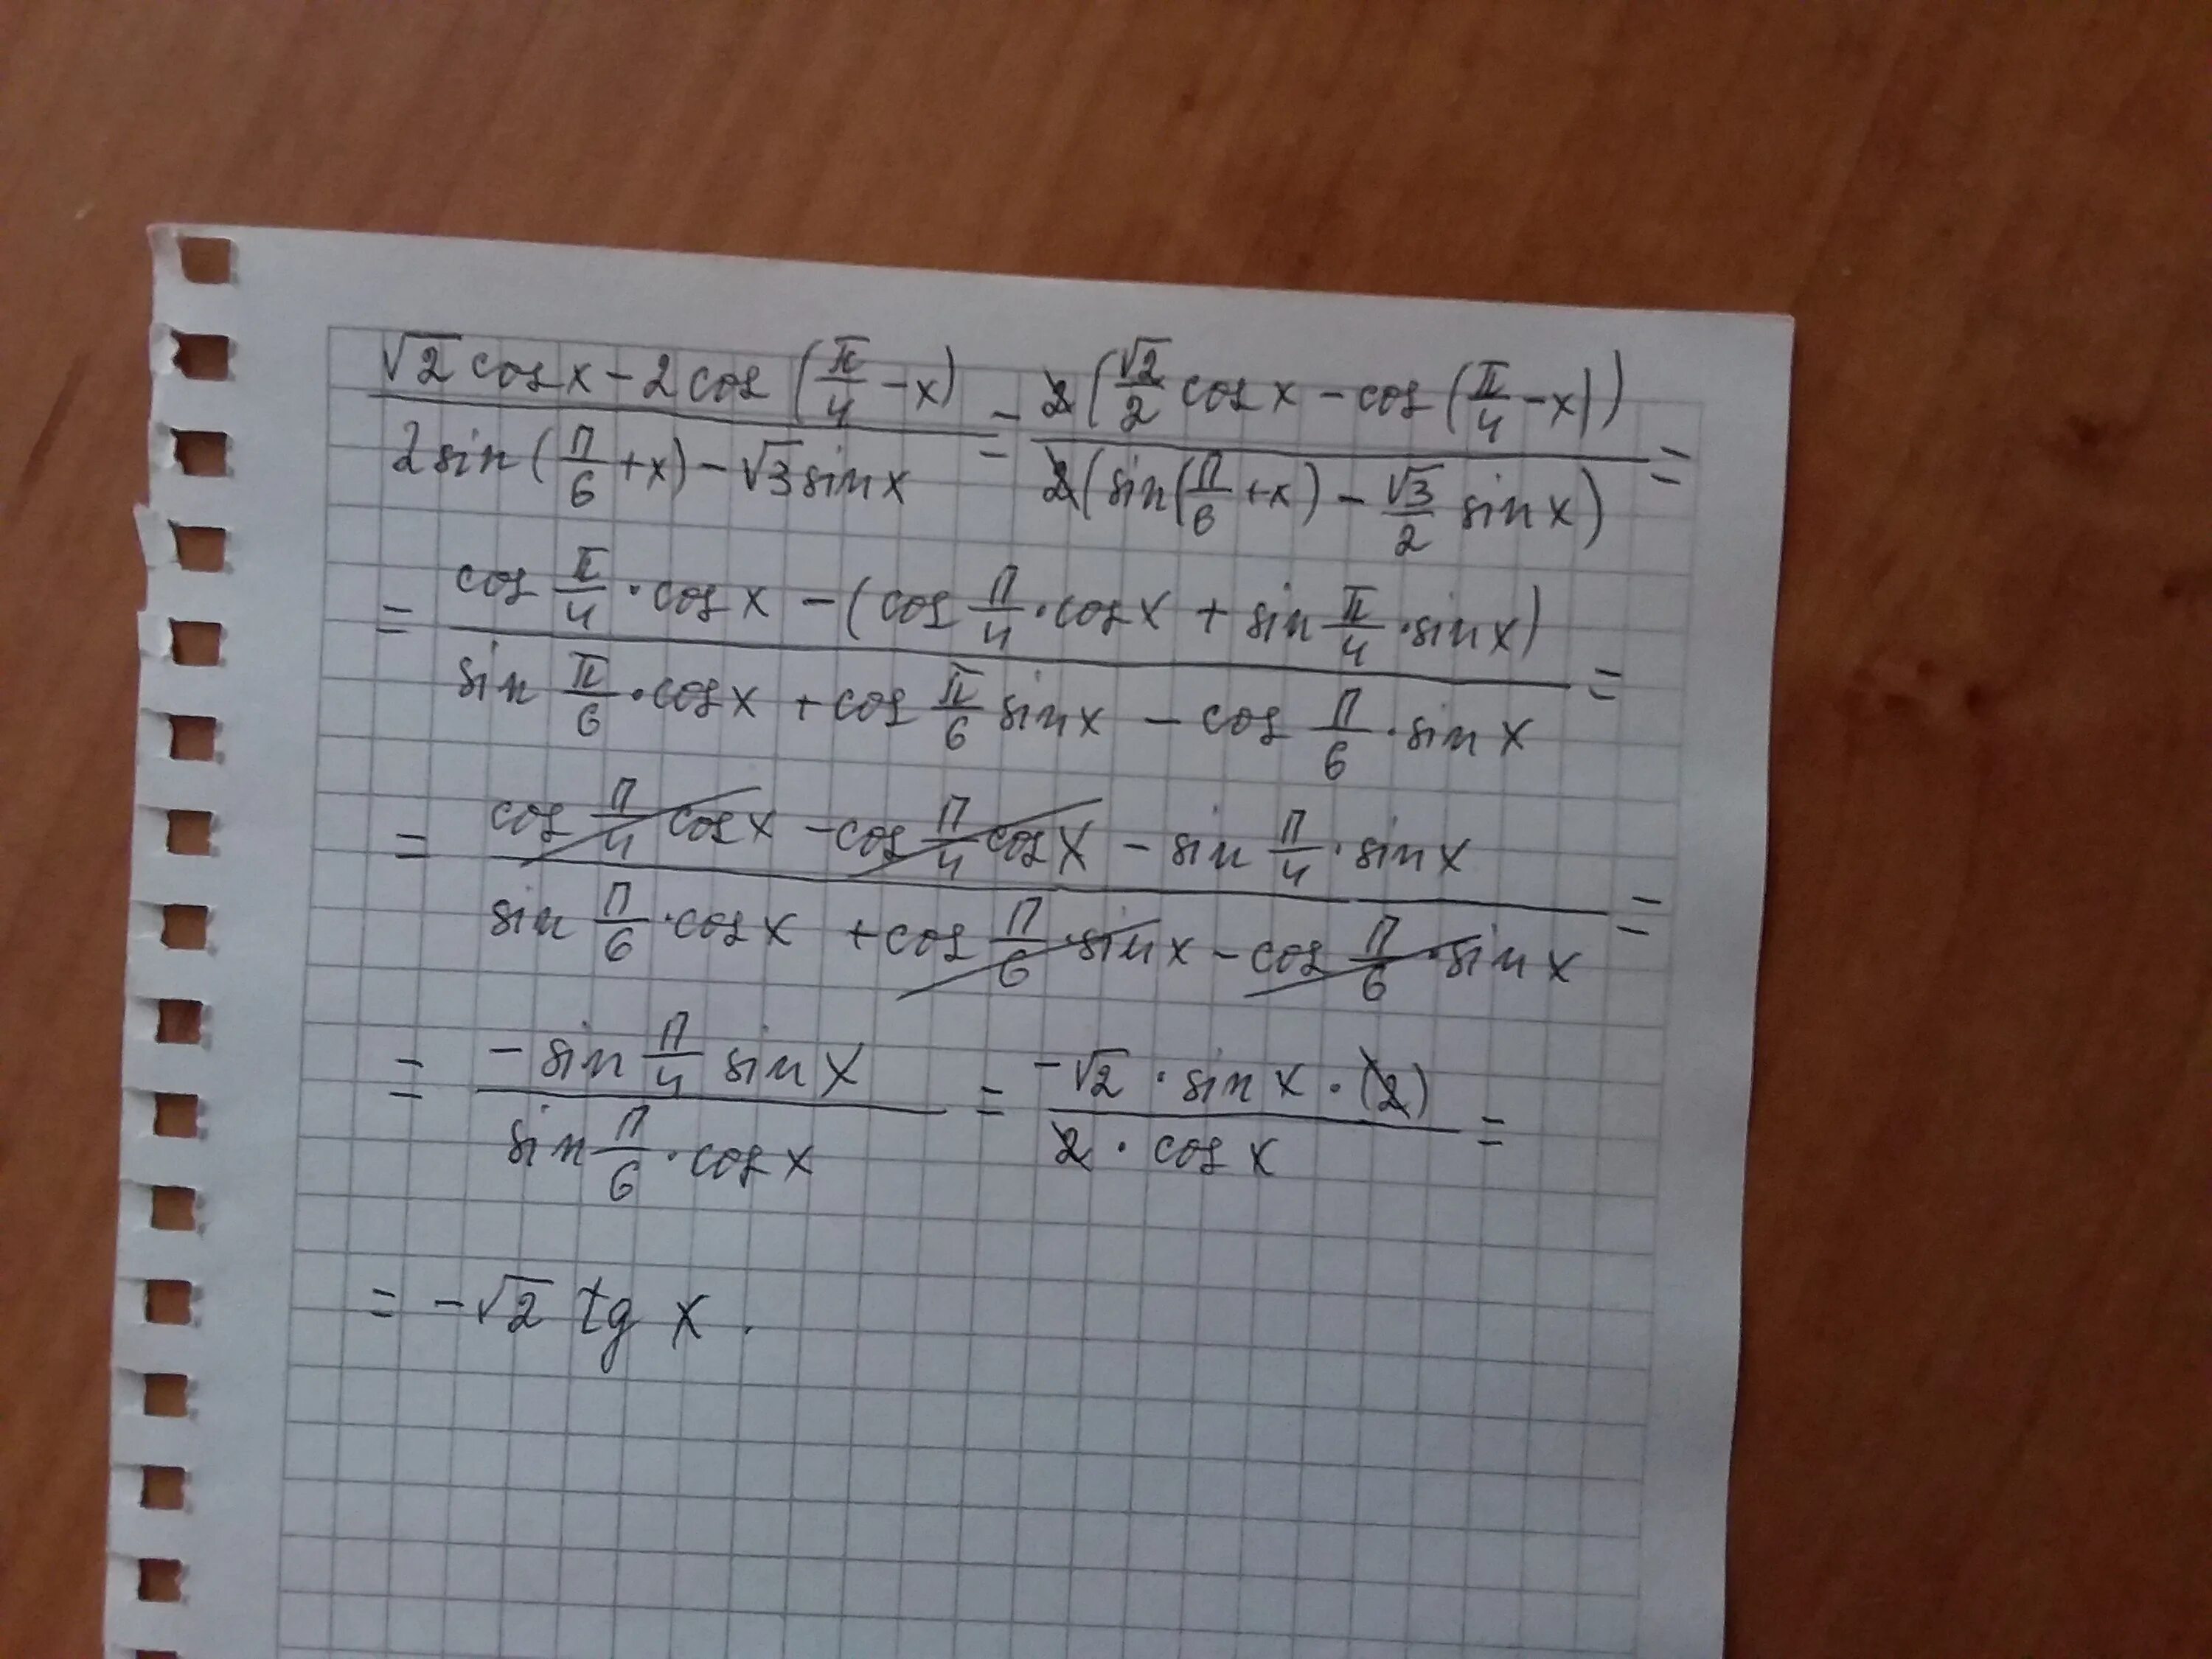 (√2 cos x − 2 cos (π/4 − x)) / (2 sin (π/6 + x) − √3 sin x) = 2(√2/2 cos x − cos (π/4 − x)) / 2(sin(π/6 + x) − √3/2 sin x) =
= (cos π/4 · cos x − (cos π/4 · cos x + sin π/4 · sin x)) / (sin π/6 · cos x + cos π/6 sin x − cos π/6 · sin x) =
= (cos π/4 cos x − cos π/4 cos x − sin π/4 · sin x) / (sin π/6 · cos x + cos π/6 · sin x − cos π/6 · sin x) =
= (−sin π/4 sin x) / (sin π/6 · cos x) = (−√2 · sin x · (2)) / (2 · cos x) =
= −√2 tg x.